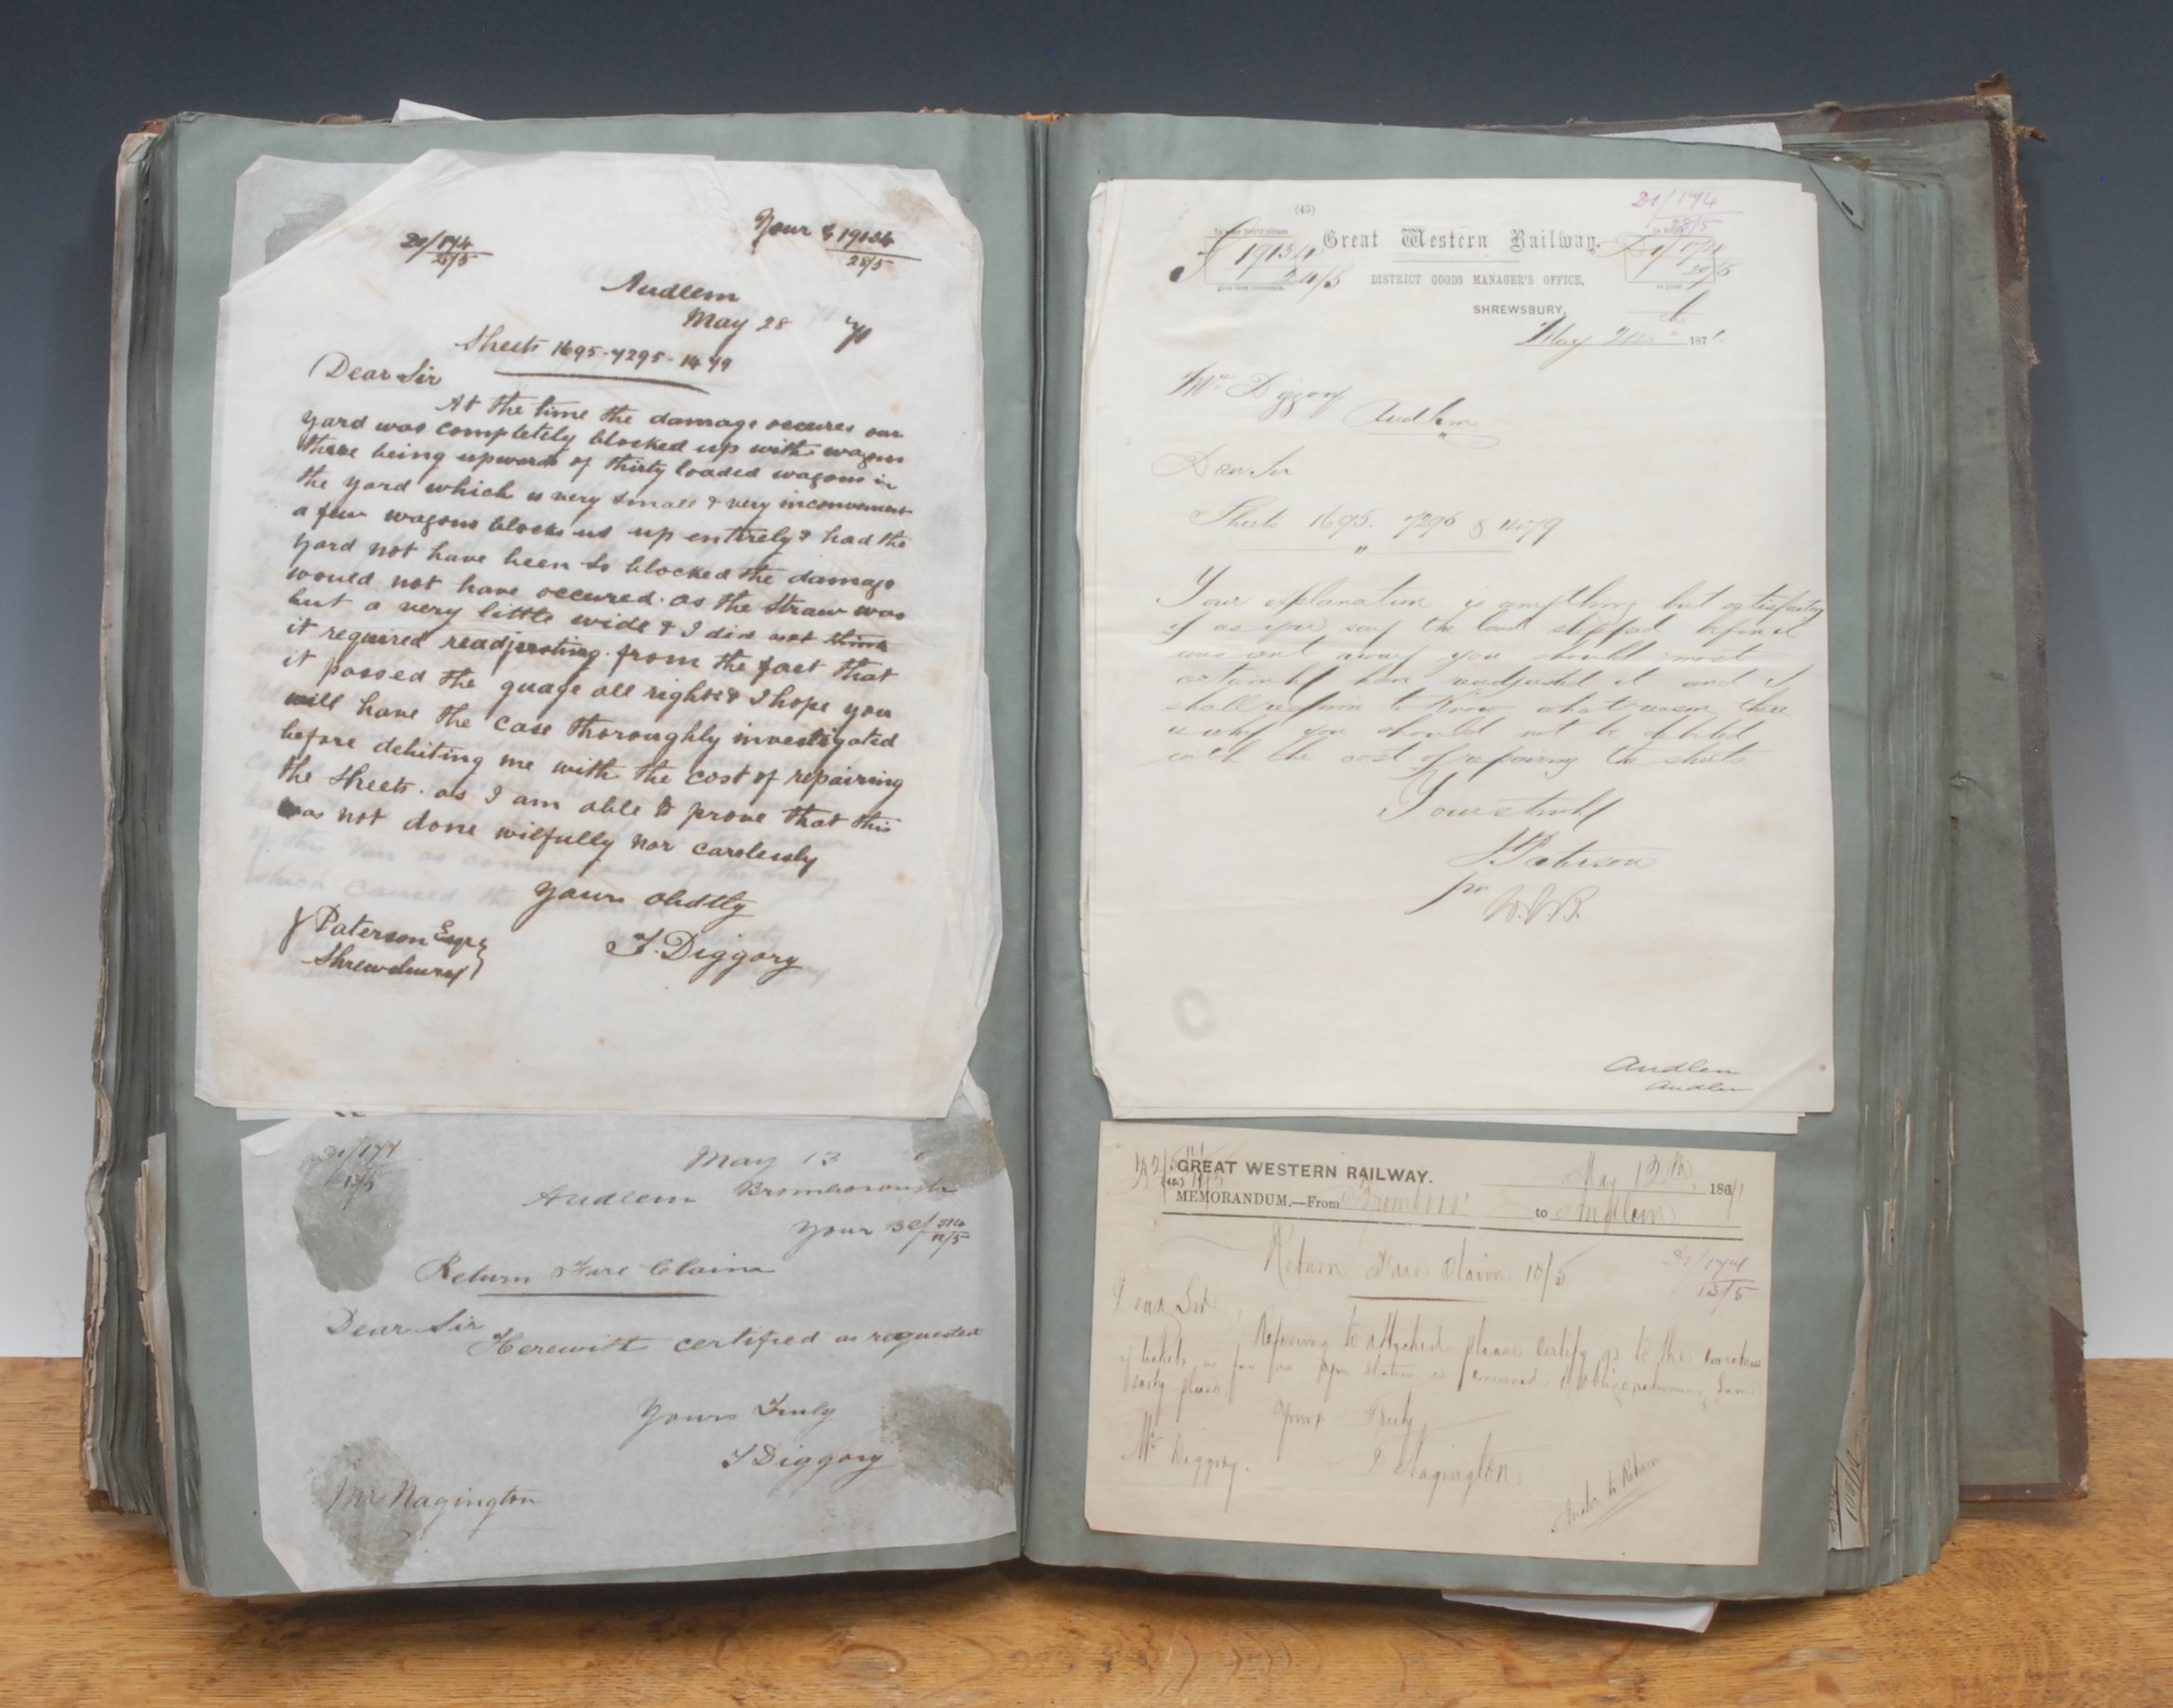 Your G 19134
28/5
D1/174
28/5
Audlem
May 28
Sheets 1695-7295-1479
Dear Sir
At the time the damage occures our
yard was completely blocked up with wagons
there being upwards of thirty loaded wagons in
the yard which is very small & very inconvenient
a few wagons blocks us up entirely & had the
yard not have been so blocked the damage
would not have occured. as the straw was
but a very little wide & I did not think
it required readjusting. from the fact that
it passed the guage all right & I hope you
will have the case thoroughly investigated
before debiting me with the cost of repairing
the sheets. as I am able to prove that this
was not done wilfully nor carelessly
Yours obdtly
J Paterson Esqr
Shrewsbury
T. Diggory
D1/174
13/5
May 13
Audlem Bromborough
Your
11/5
Return Fare Claim
Dear Sir
Herewith certified as requested
Yours Truly
T Diggory
Mr Nagington
D1/174
28/5
(45)
Great Western Railway.
19134
24/5
D1/174
DISTRICT GOODS MANAGER'S OFFICE,
SHREWSBURY,
May 187
Mr Diggory
Audlem
Dear Sir
Sheets 1695. 7295 & 1479
Your explanation is anything but satisfactory
if as you say the load slipped before it
was sent away you should most
certainly have readjusted it and I
shall require to know what reason there
is why you should not be debited
with the cost of repairing the sheets
Yours truly
J Paterson
pr W.
Audlem
Audlem
GREAT WESTERN RAILWAY.
May 12th 186
MEMORANDUM.—From Bromboro' to Audlem
Return Fare Claim 10/5
D1/174
13/5
Dear Sir
Referring to attached please certify as to the correctness
of tickets as far as your station is concerned & oblige returning same
early please
Yours Truly
Mr Diggory.
Nagington